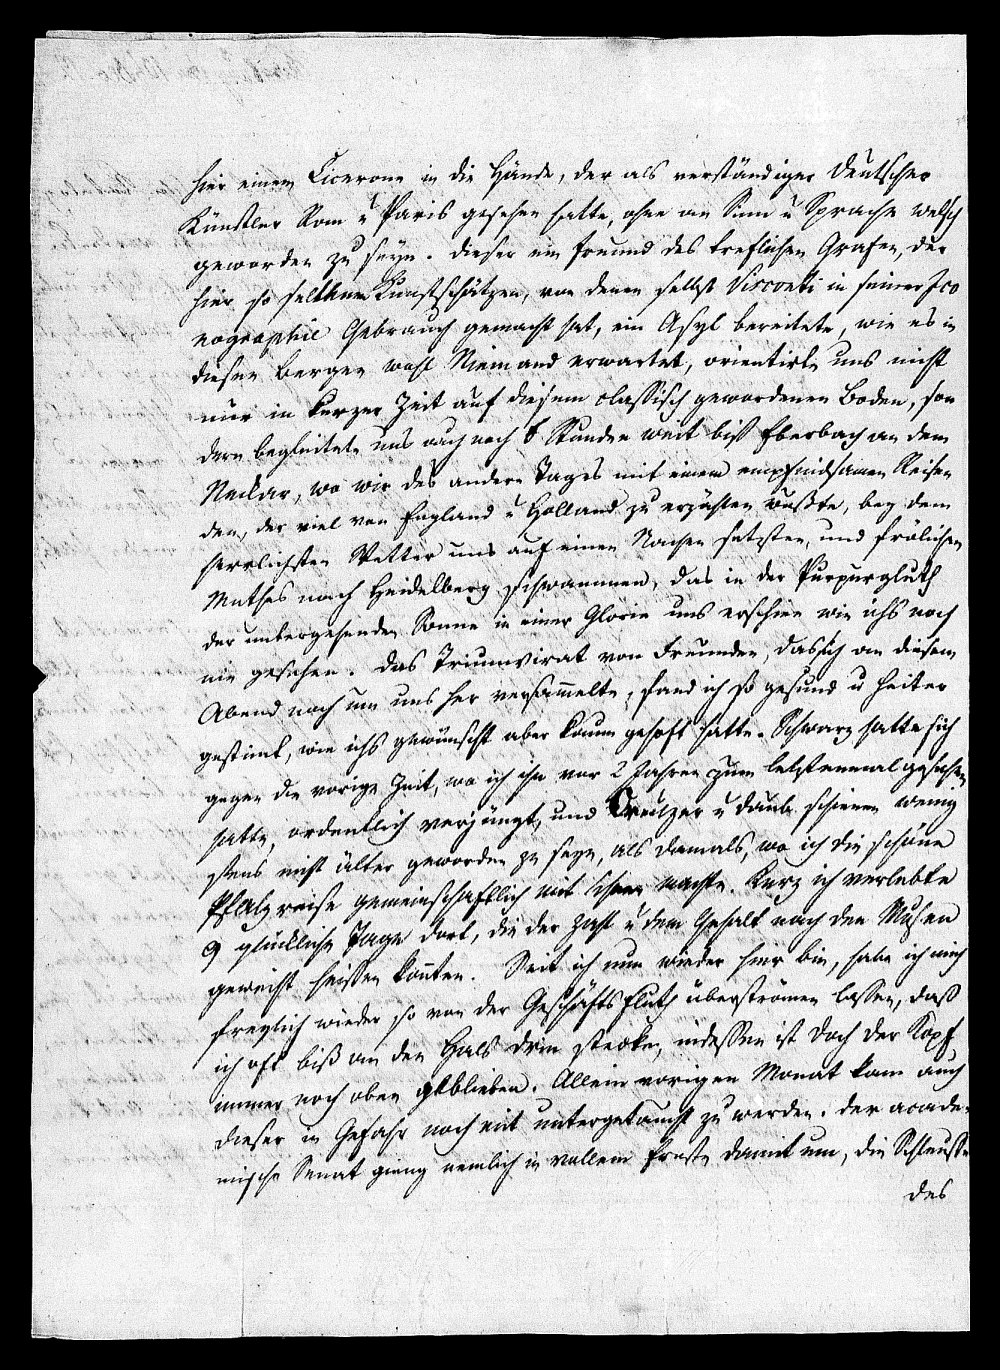 hier einem Cicerone in die Hände, der als verständiger deutscher
Künstler Rom u Paris gesehen hatte, ohne an Sinn u Sprache welsch
geworden zu seyn. dieser ein Freund des treflichen Grafen, der
hier so seltenen Kunstschätzen, von denen selbst Visconti in seiner Ico
nographie Gebrauch gemacht hat, ein Asyl bereitete, wie es in
diesen Bergen wohl Niemand erwartet, orientirte uns nicht
nur in kurzer Zeit auf diesem classisch gewordenen Boden, son
dern begleitete uns auch noch 6 Stunden weit biß Eberbach an dem
Neckar, wo wir des andern Tages mit einem empfindsamen Reisen
den, der viel von England u Holland zu erzählen wußte, bey dem
herrlichsten Wetter uns auf einen Nachen setzten, und frölichen
Muthes nach Heidelberg schwammen, das in der Purpurgluth
der untergehenden Sonne in einer Glorie uns erschien wie ichs noch
nie gesehen. Das Triumvirat von Freunden, das sich an diesem
Abend noch um uns her versammelte, fand ich so gesund u heiter
gestimt, wie ichs gewünscht aber kaum gehoft hatte. Schwarz hatte sich
gegen die vorige Zeit, wo ich ihn vor 2 Jahren zum letztenmal gesehen
hatte, ordentlich verjüngt, und Creuzer u Daub schienen wenig
stens nicht älter geworden zu seyn, als damals, wo ich die schöne
Pfalzreise gemeinschaftlich mit ihnen machte. Kurz ich verlebte
9 glückliche Tage dort, die der Zahl u dem Gehalt nach den Musen
geweiht heissen konten. Seit ich nun wieder hier bin, habe ich mich
freylich wieder so von der Geschäfts Fluth überströmen lassen, daß
ich oft biß an den Hals drin stecke, indessen ist doch der Kopf
immer noch oben geblieben. Allein vorigen Monat kam auch
dieser in Gefahr noch mit untergetaucht zu werden. der acade-
mische Senat gieng nemlich in vollem Ernste damit um, die Schleusse
des